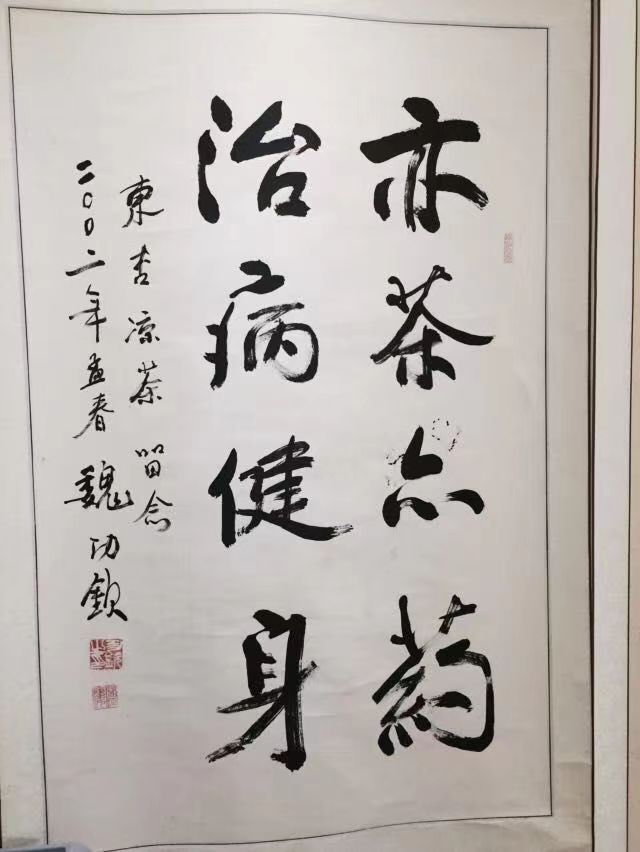 亦茶亦葯
治病健身
東杏凉茶留念
二〇〇二年孟春 魏功欽